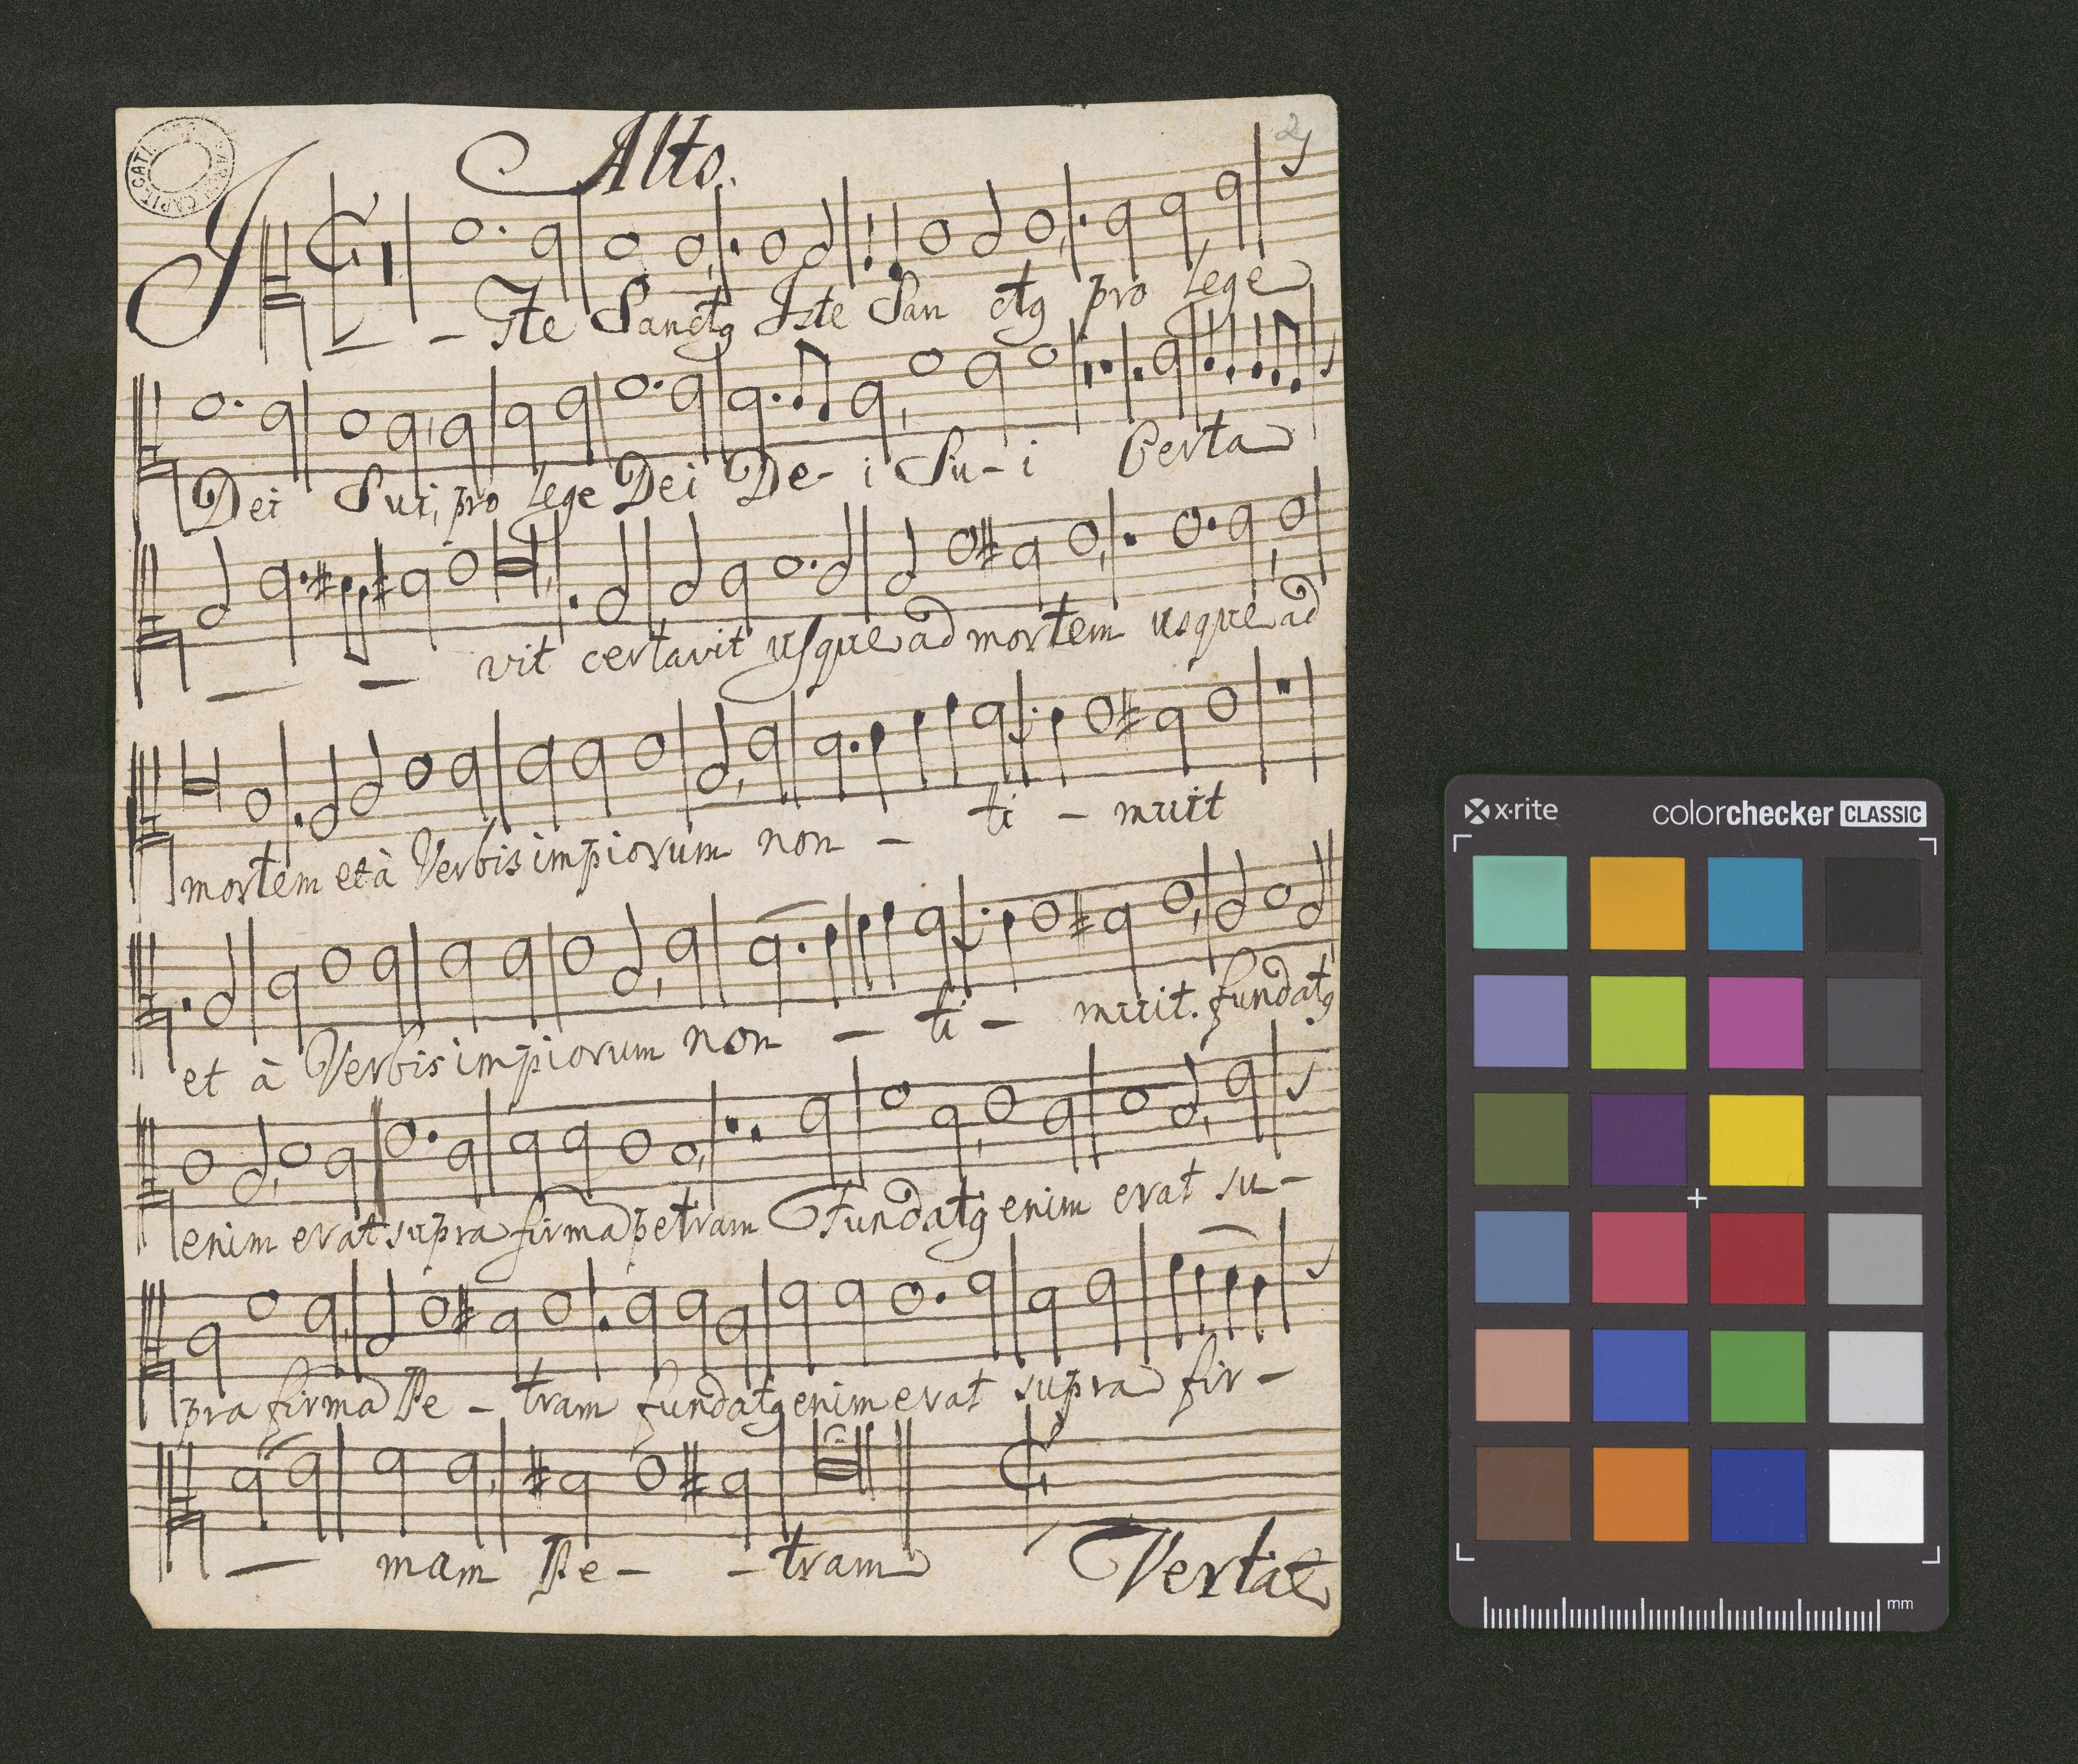 2
Alto.
I - Ste Sanctꝯ Iste San ctꝯ pro Lege
Dei Sui, pro Lege Dei De- i Su- i Certa
- - vit certavit usque ad mortem usque ad
mortem et à Verbis impiorum non - ti - muit
et à Verbis impiorum non - ti - muit. fundatꝯ
enim erat supra firma petram Fundatꝯ enim erat su-
pra firma Pe - tram fundatꝯ enim erat supra fir-
- mam Pe- - tram
Vertat
x·rite colorchecker CLASSIC
mm